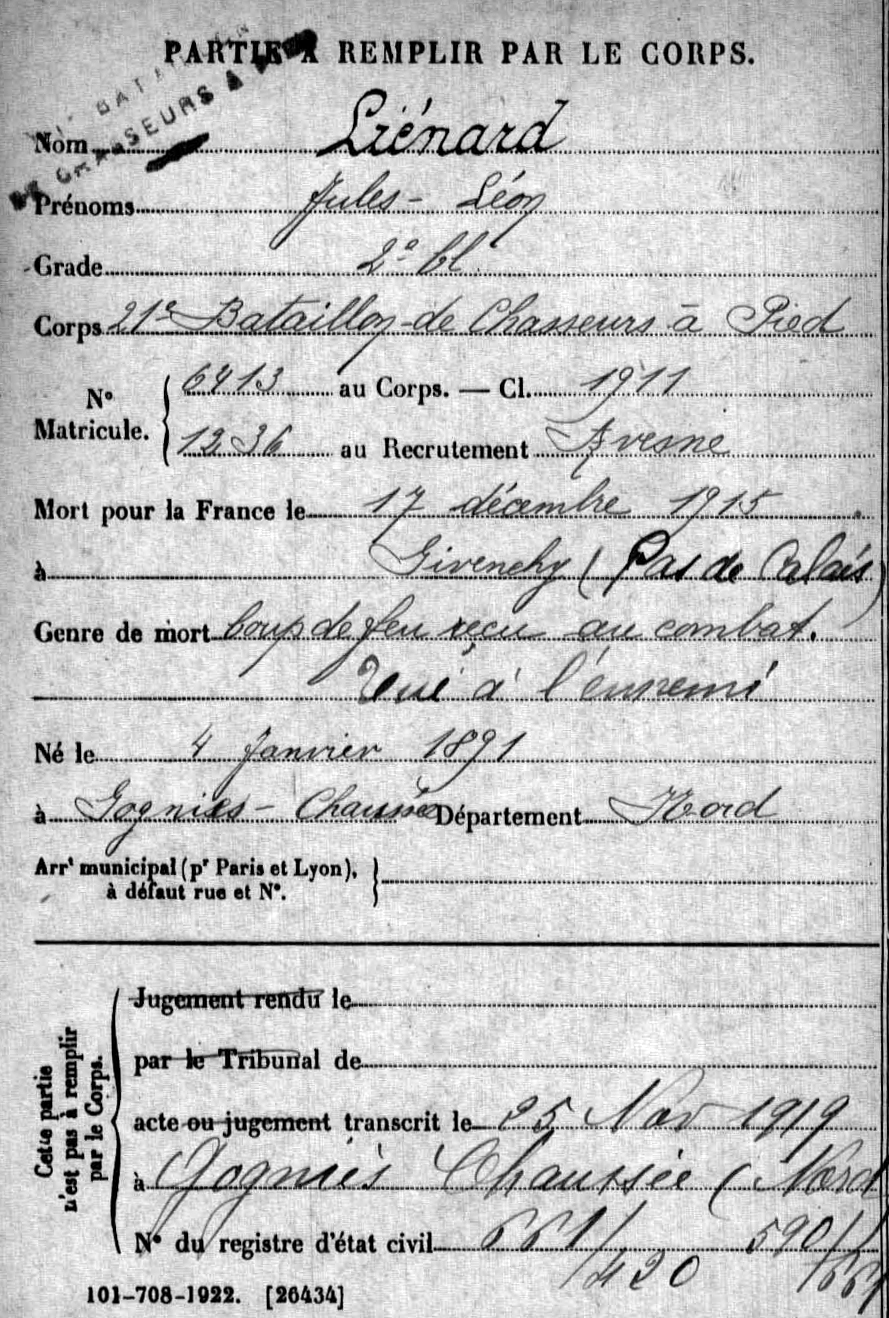 PARTIE A REMPLIR PAR LE CORPS.
BATAILLON
DE CHASSEURS A PIED
Nom Liénard
Prénoms Jules - Léon
Grade 2e Cl.
Corps 21e Bataillon de Chasseurs à Pied
N° Matricule. { 6413 au Corps. — Cl. 1911
1236 au Recrutement Avesne
Mort pour la France le 17 décembre 1915
à Givenchy (Pas de Calais)
Genre de mort Coup de feu reçu au combat.
Tué à l'ennemi
Né le 4 Janvier 1891
à Gognies - Chaussée Département Nord
Arrt municipal (pr Paris et Lyon), }
à défaut rue et N°.
Cette partie n'est pas à remplir par le Corps. {
Jugement rendu le
par le Tribunal de
acte ou jugement transcrit le 25 Nov 1919
à Gognies Chaussée (Nord
N° du registre d'état civil 661/ 590/
/420 /661
101-708-1922. [26434]